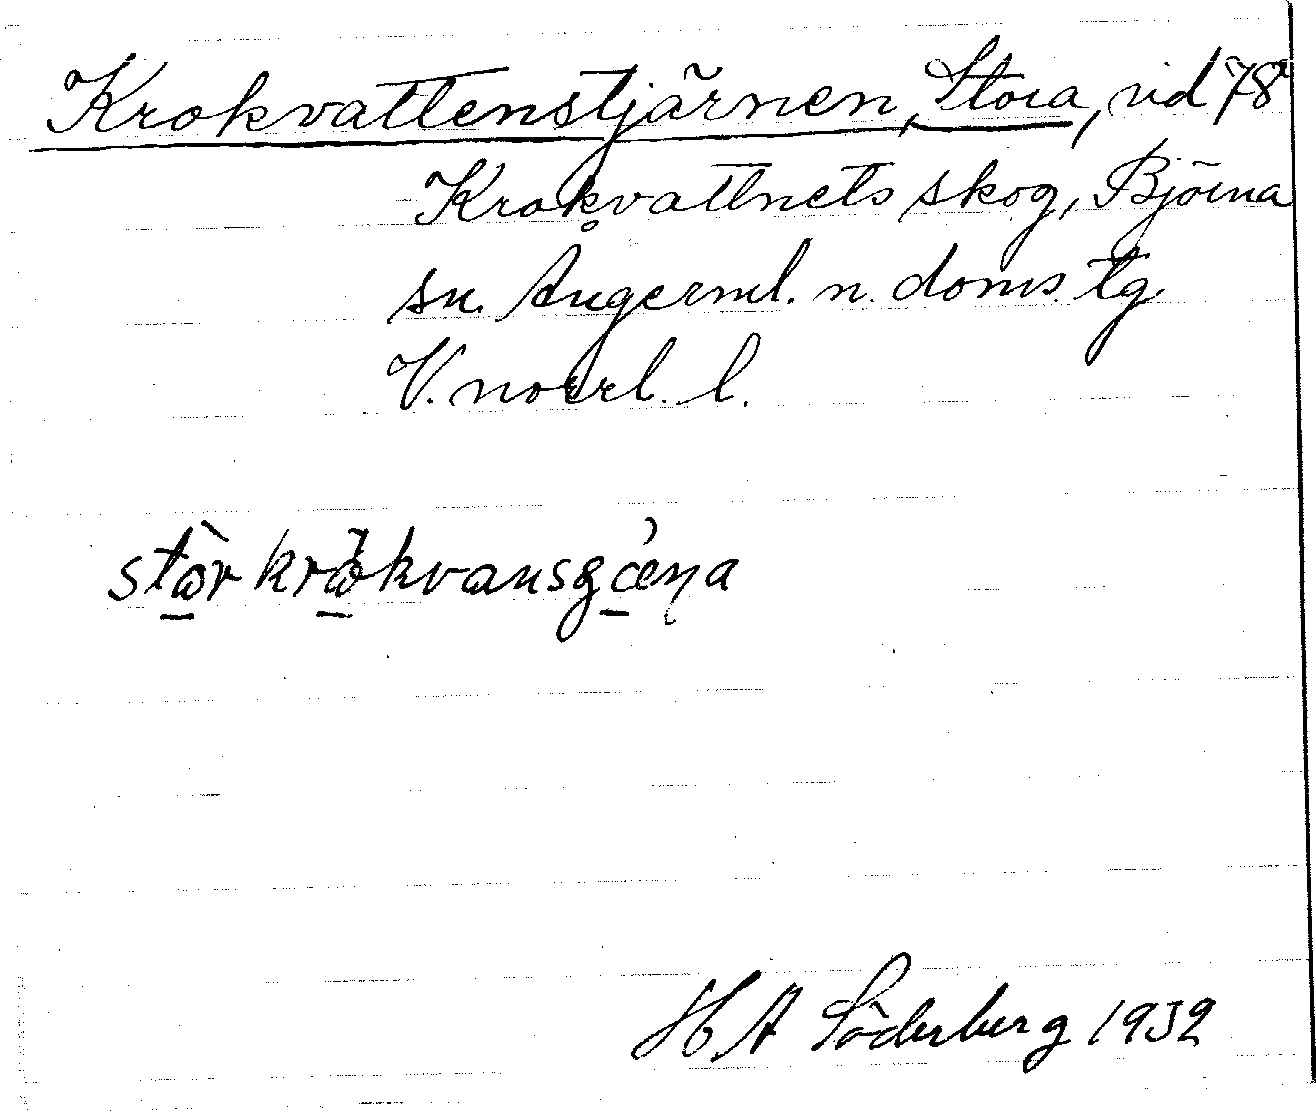 Krokvattenstjärnen, Stora, vid 78
Krokvattnets skog, Björna
sn. Ångerml. n. doms. tg.
V. norrl. l.
stòr krokvansgæṇa
H. A Söderberg 1932